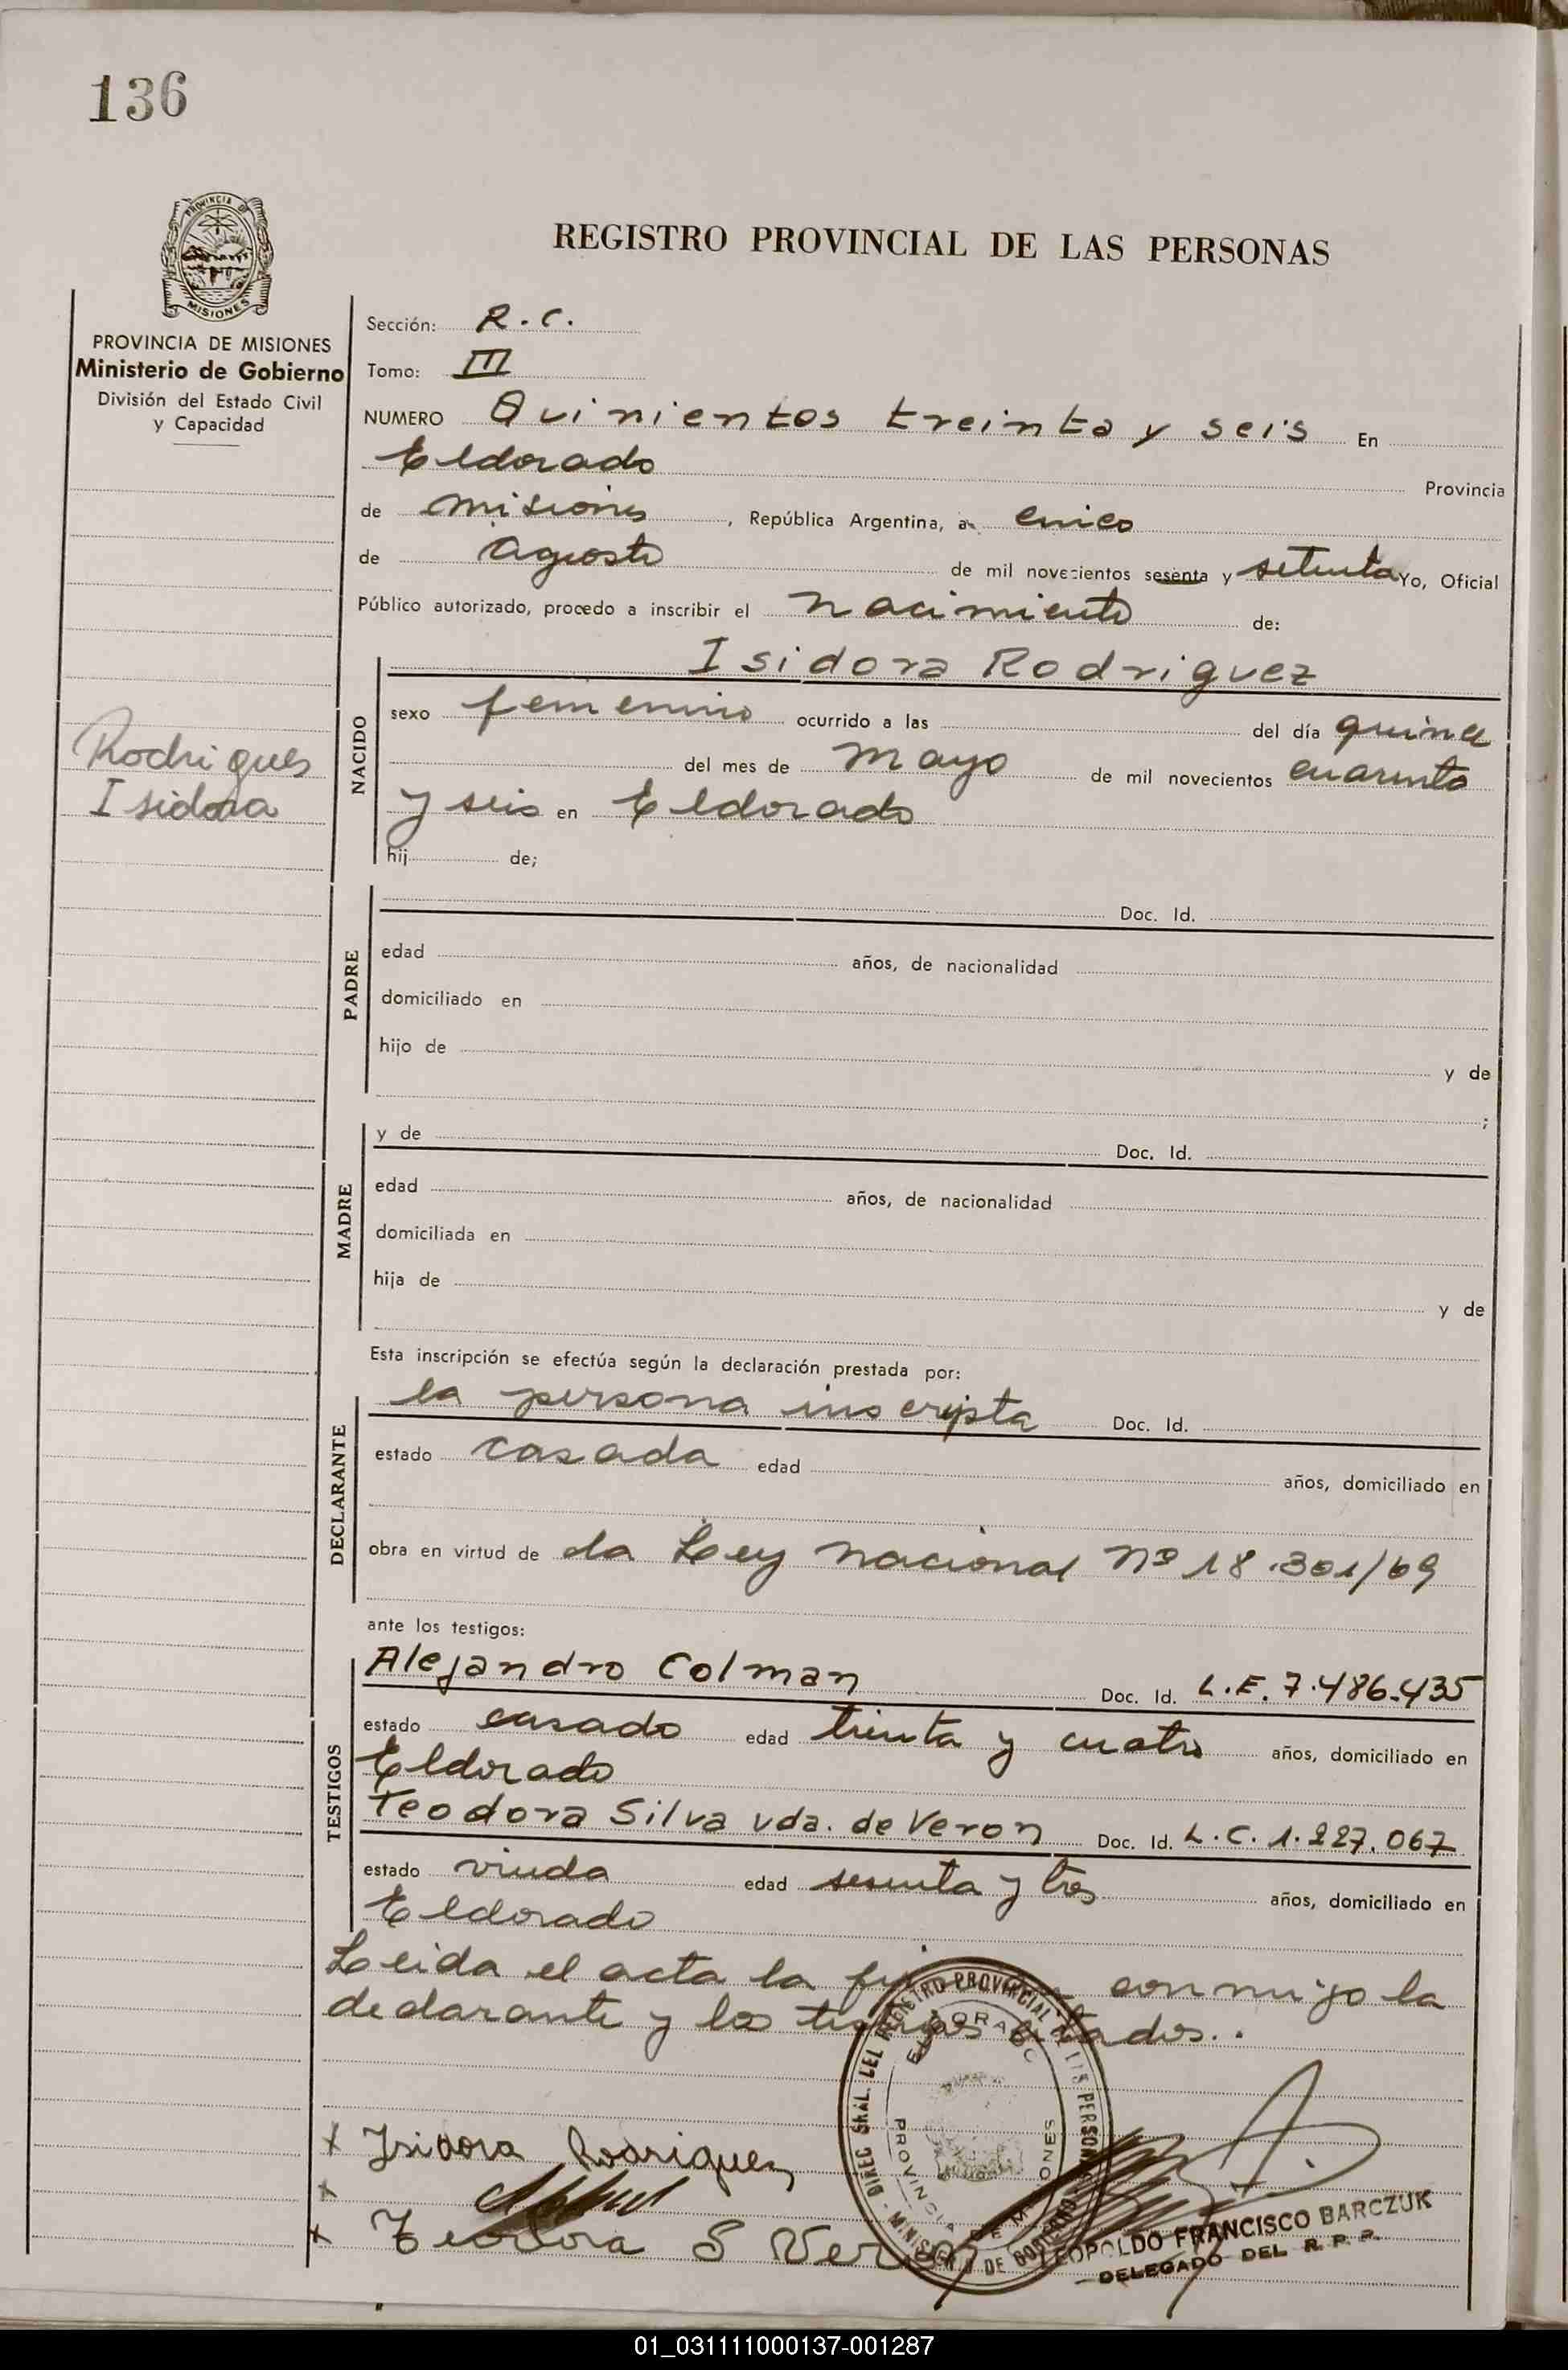 136
PROVINCIA DE
MISIONES
PROVINCIA DE MISIONES
Ministerio de Gobierno
División del Estado Civil
y Capacidad
REGISTRO PROVINCIAL DE LAS PERSONAS
Sección: R.C.
Tomo: III
NUMERO Quinientos treinta y seis En
Eldorado Provincia
de misiones, República Argentina, a cinco
de agosto de mil novecientos sesenta y setenta Yo, Oficial
Público autorizado, procedo a inscribir el nacimiento de:
Isidora Rodriguez
NACIDO
sexo femenino ocurrido a las del día quince
del mes de mayo de mil novecientos cuarenta
y seis en Eldorado
hij de;
Rodrigues
Isidora
PADRE
Doc. Id.
edad años, de nacionalidad
domiciliado en
hijo de y de
;
MADRE
y de Doc. Id.
edad años, de nacionalidad
domiciliada en
hija de y de
Esta inscripción se efectúa según la declaración prestada por:
DECLARANTE
la persona inscripta Doc. Id.
estado casada edad años, domiciliado en
obra en virtud de la Ley nacional Nº 18.301/69
ante los testigos:
TESTIGOS
Alejandro Colman Doc. Id. L.E. 7.486.435
estado casado edad treinta y cuatro años, domiciliado en
Eldorado
Teodora Silva vda. de Veron Doc. Id. L.C. 1.227.067
estado viuda edad sesenta y tres años, domiciliado en
Eldorado
Leida el acta la conmigo la
declarante y los testigos citados..
DIREC GRAL. DEL REGISTRO PROVINCIAL DE LAS PERSONAS
MINISTERIO DE GOBIERNO
ELDORADO
PROVINCIA DE MISIONES
x Isidora Rodriguez
x
x Teodora S Veron
LEOPOLDO FRANCISCO BARCZUK
DELEGADO DEL R. P. P.
01_031111000137-001287